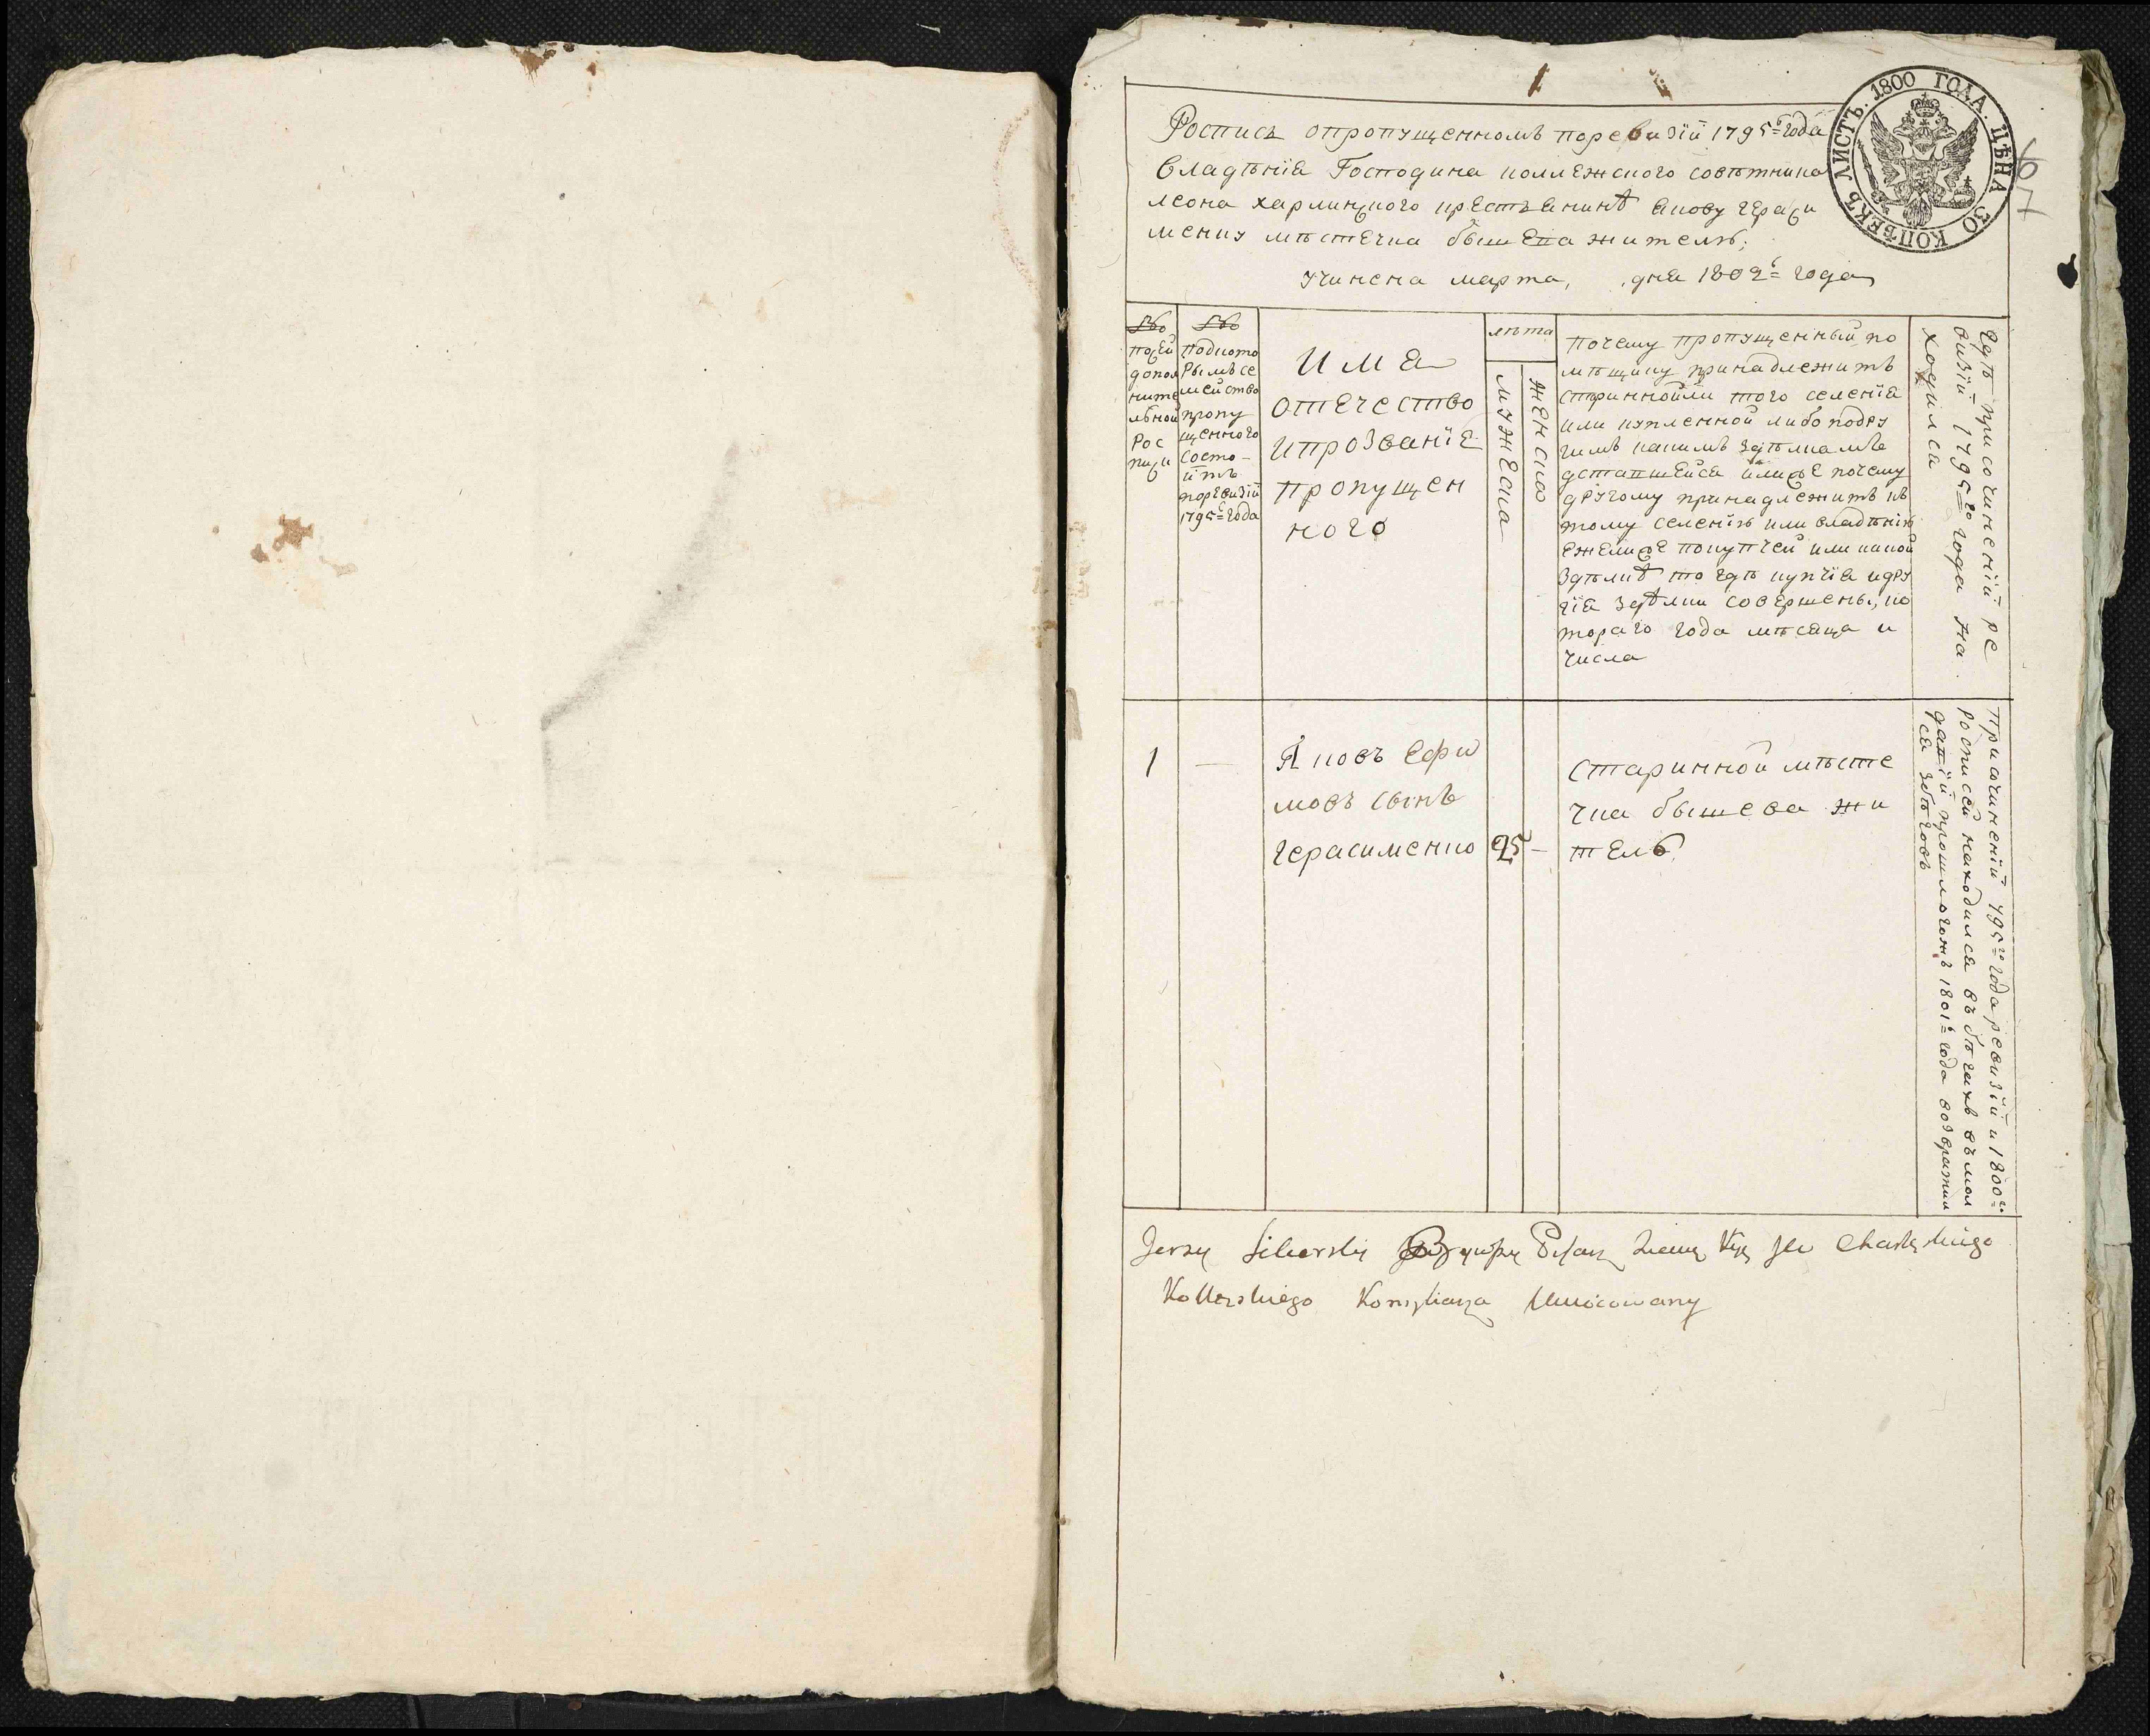 ЛИСТЪ. 1800 ГОДА. ЦѢНА 30 КОПѢЕКЪ.
6
7
Роспись опропущенномъ поревизіи 1795 года
владѣнїя Господина коллежского совѣтника
леона харлинского крестьянинѣ якову гераси
менку мѣстечка бышева жителѣ;
учинена марта, дня 1802 года
№
посей
допол
ните
льной
Рос
писи
№
подкото
рымъ се
мейство
пропу
щенного
состо-
итъ
поревизіи
1795 года
имя
отечество
ипрозванїе
пропущен
ного
лѣта
мужеска
женска
почему пропущенный по
мѣщику принадлежитъ
стариннойли того селенїя
или купленной либо подру
гимъ какимъ здѣлкамъ
доставшейся илиже почему
другому принадлежитъ къ
тому селенїю или владѣнїю
ежелиже покупчей или какой
здѣлкѣ то гдѣ купчїя идру
гїя здѣлки совершены, ко
тораго года мѣсяца и
числа
гдѣ присочиненїй ре
визій 1795 го года на
ходился
1
—
Яковъ Ефи
мовъ сынъ
герасименко
25
—
старинной мѣсте
чка бышева жи
тель.
Присочиненїй 795 го года ревизій и 1800 го
росписей находился въ бѣгахъ въ мол
давїй прошлогожъ 1801 года возврати
ся збѣговъ
Jerzy
Chарlęskiego
Kollezskiego Konsyliarza Umocowany